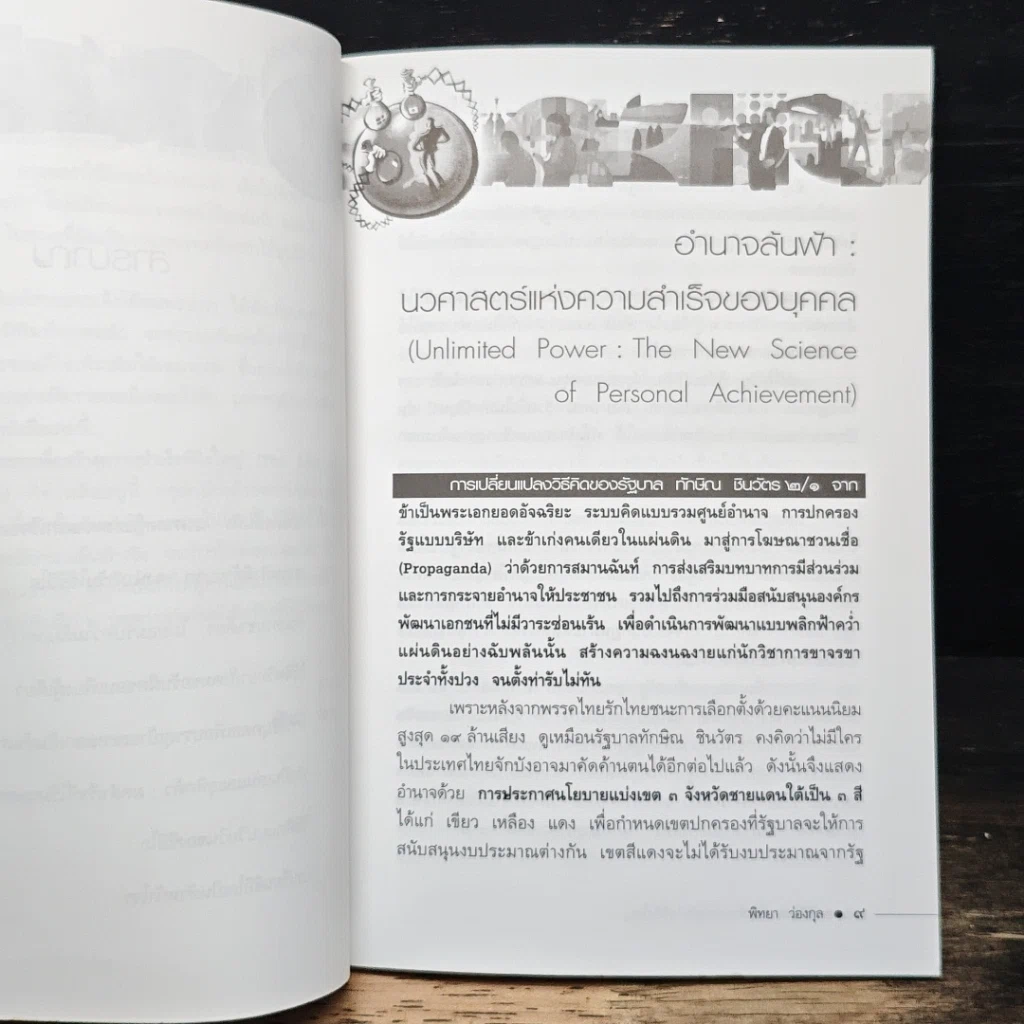 สารบาญ
อำนาจล้นฟ้า :
นวศาสตร์แห่งความสำเร็จของบุคคล
(Unlimited Power : The New Science
of Personal Achievement)
การเปลี่ยนแปลงวิธีคิดของรัฐบาล ทักษิณ ชินวัตร ๒/๑ จาก
ข้าเป็นพระเอกยอดอัจฉริยะ ระบบคิดแบบรวมศูนย์อำนาจ การปกครอง
รัฐแบบบริษัท และข้าเก่งคนเดียวในแผ่นดิน มาสู่การโฆษณาชวนเชื่อ
(Propaganda) ว่าด้วยการสมานฉันท์ การส่งเสริมบทบาทการมีส่วนร่วม
และการกระจายอำนาจให้ประชาชน รวมไปถึงการร่วมมือสนับสนุนองค์กร
พัฒนาเอกชนที่ไม่มีวาระซ่อนเร้น เพื่อดำเนินการพัฒนาแบบพลิกฟ้าคว่ำ
แผ่นดินอย่างฉับพลันนั้น สร้างความฉงนฉงายแก่นักวิชาการขาจรขา
ประจำทั้งปวง จนตั้งท่ารับไม่ทัน
เพราะหลังจากพรรคไทยรักไทยชนะการเลือกตั้งด้วยคะแนนนิยม
สูงสุด ๑๙ ล้านเสียง ดูเหมือนรัฐบาลทักษิณ ชินวัตร คงคิดว่าไม่มีใคร
ในประเทศไทยจักบังอาจมาคัดค้านตนได้อีกต่อไปแล้ว ดังนั้นจึงแสดง
อำนาจด้วย การประกาศนโยบายแบ่งเขต ๓ จังหวัดชายแดนใต้เป็น ๓ สี
ได้แก่ เขียว เหลือง แดง เพื่อกำหนดเขตปกครองที่รัฐบาลจะให้การ
สนับสนุนงบประมาณต่างกัน เขตสีแดงจะไม่ได้รับงบประมาณจากรัฐ
พิทยา ว่องกุล ● ๙